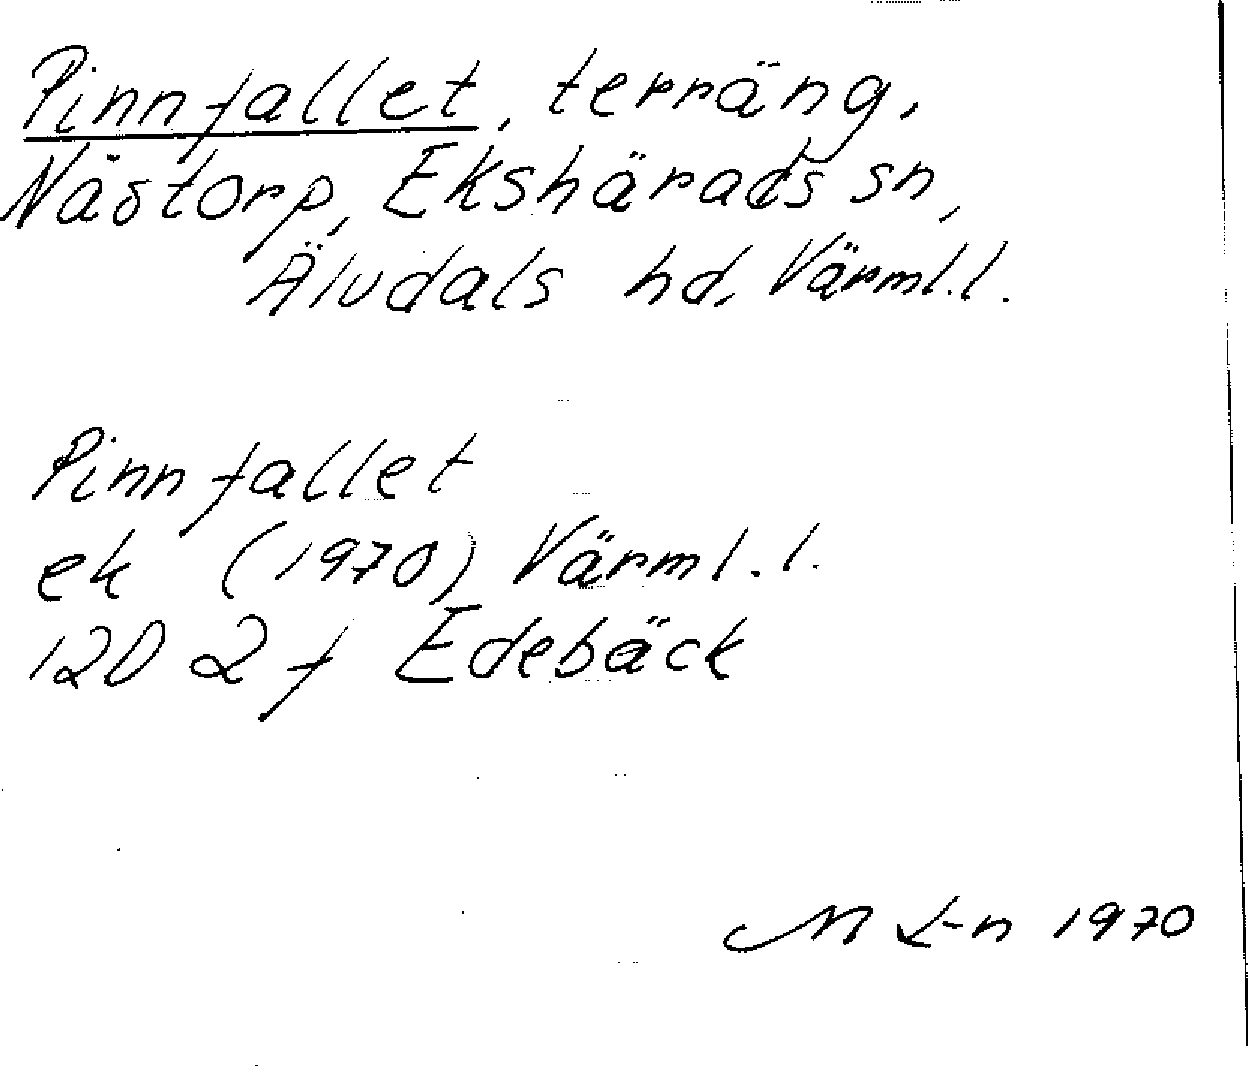 Pinnfallet, terräng,
Nästorp, Ekshärads sn,
Älvdals hd, Värml.l.
Pinnfallet
ek (1970) Värml.l.
12D 2f Edebäck
M L-n 1970